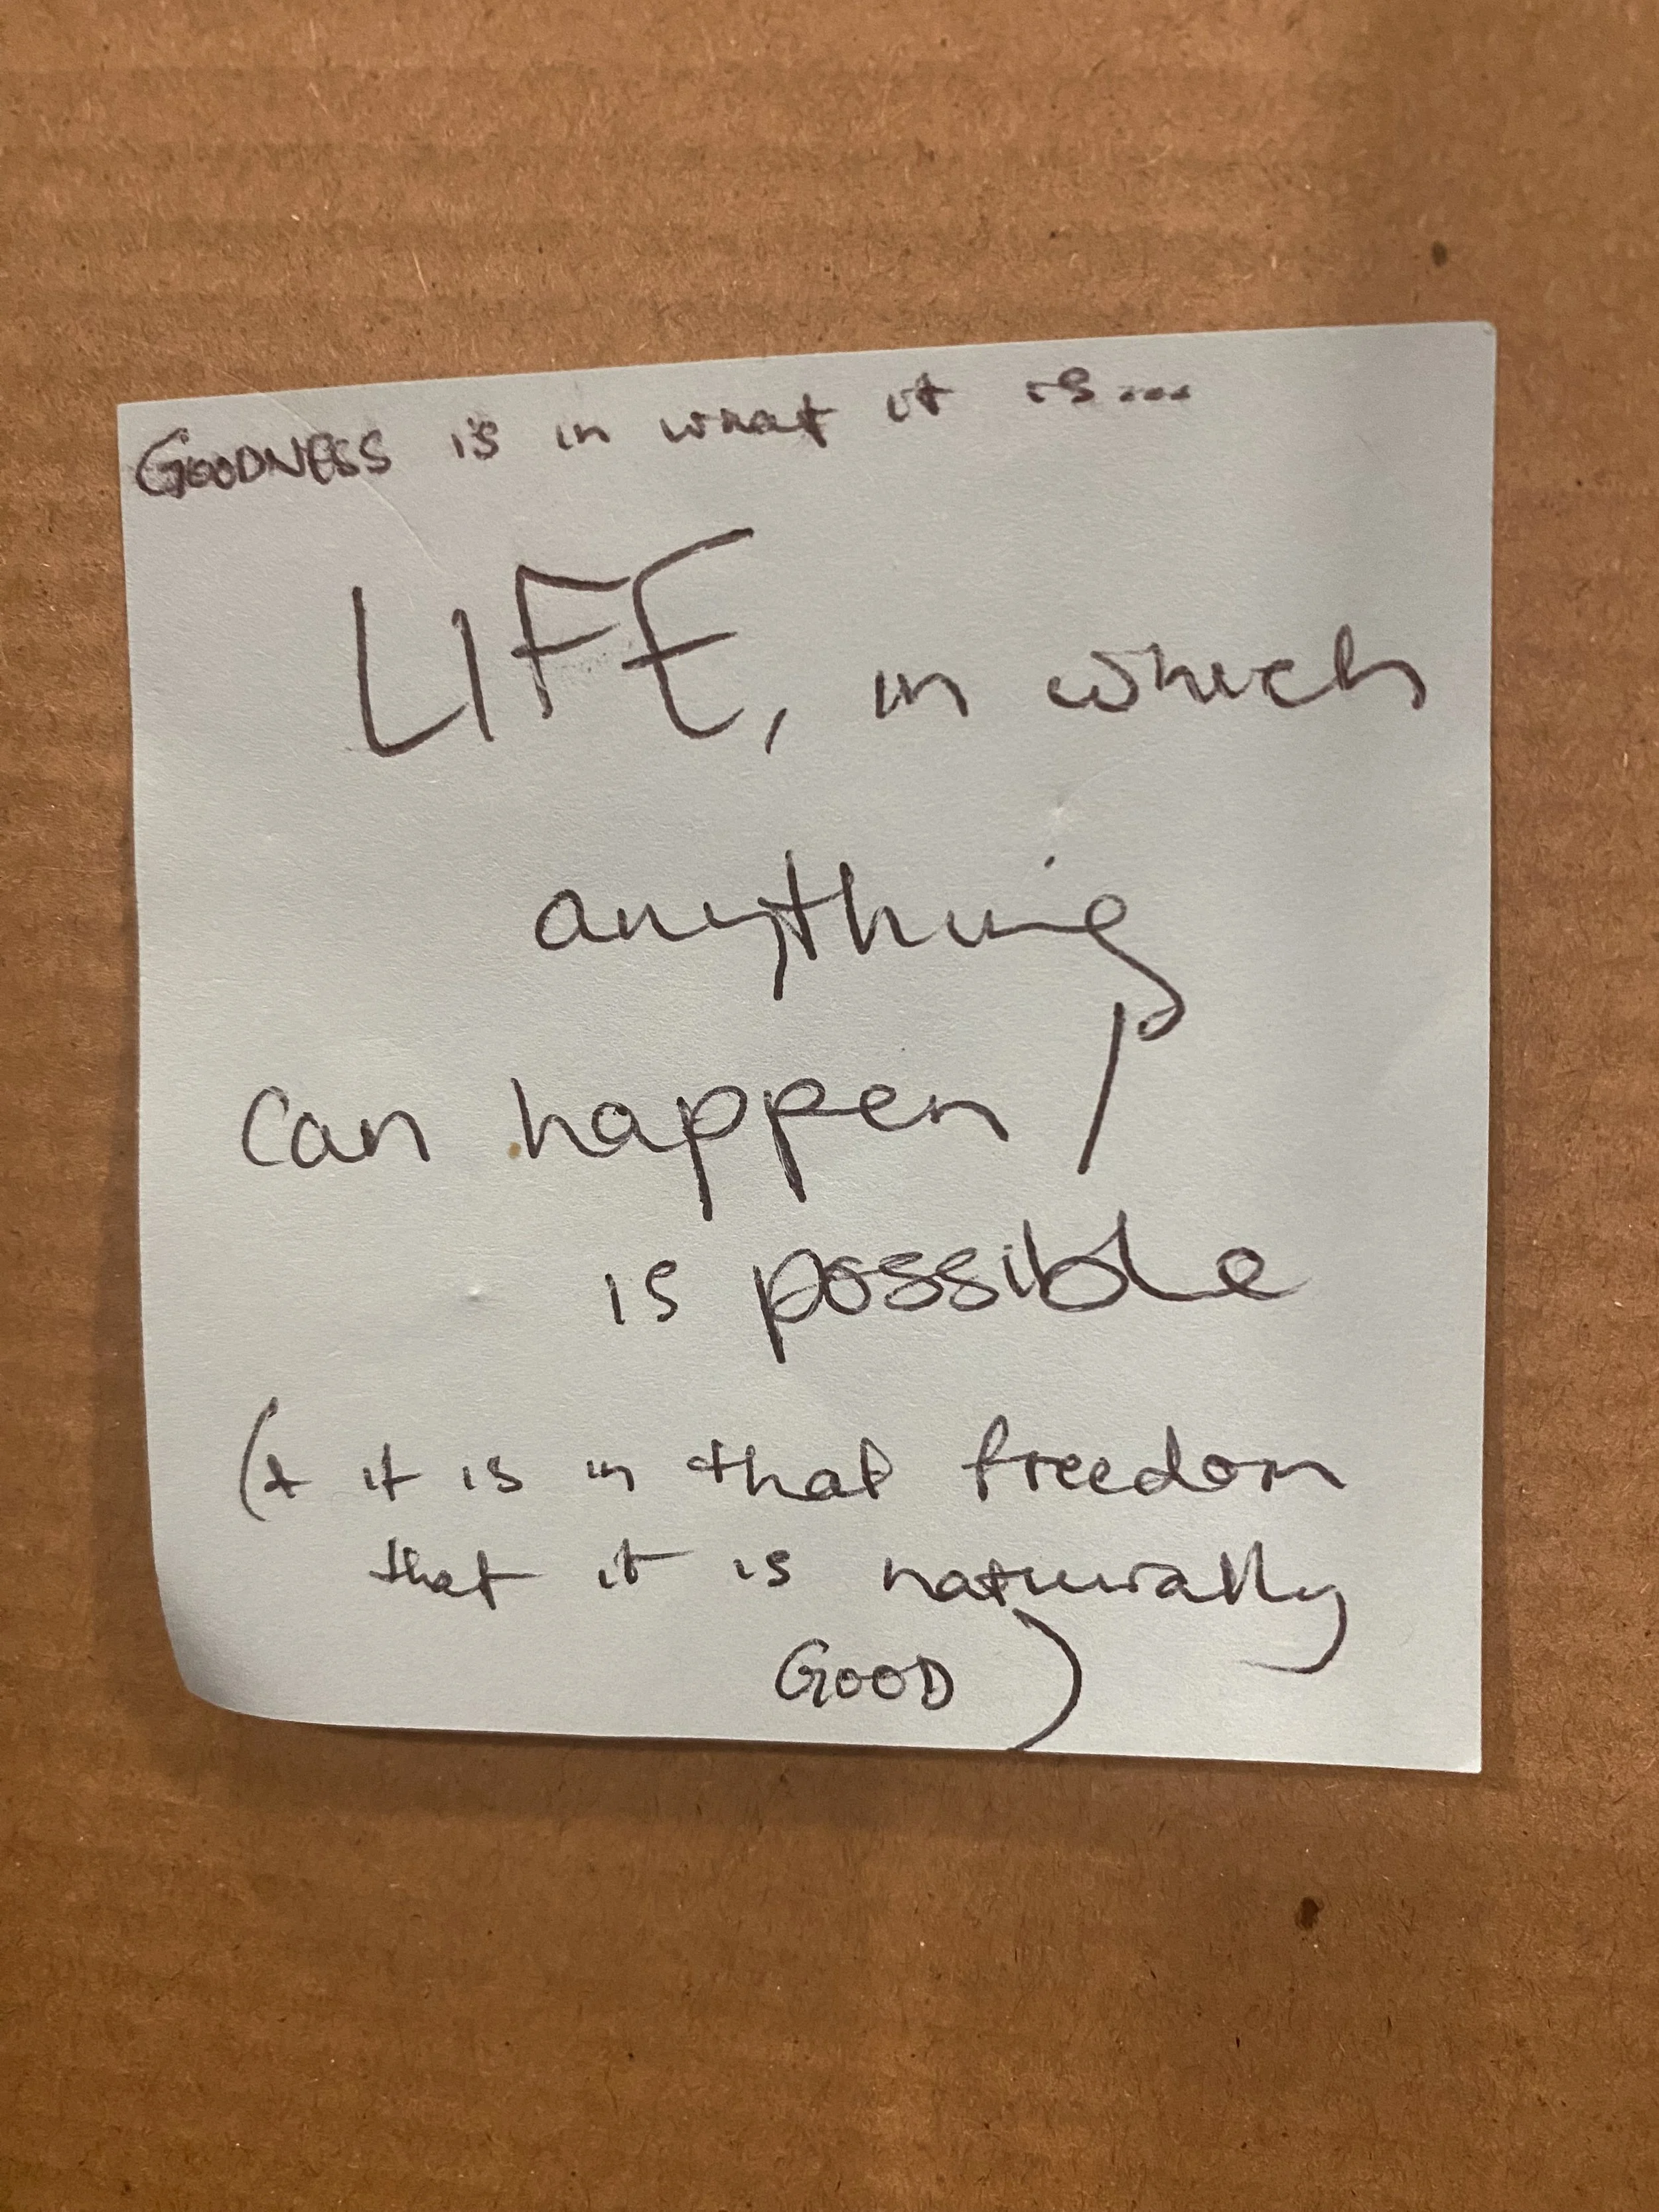 GOODNESS is in what it is...
LIFE, in which
anything
can happen /
is possible
(+ it is in that freedom
that it is naturally
GOOD)